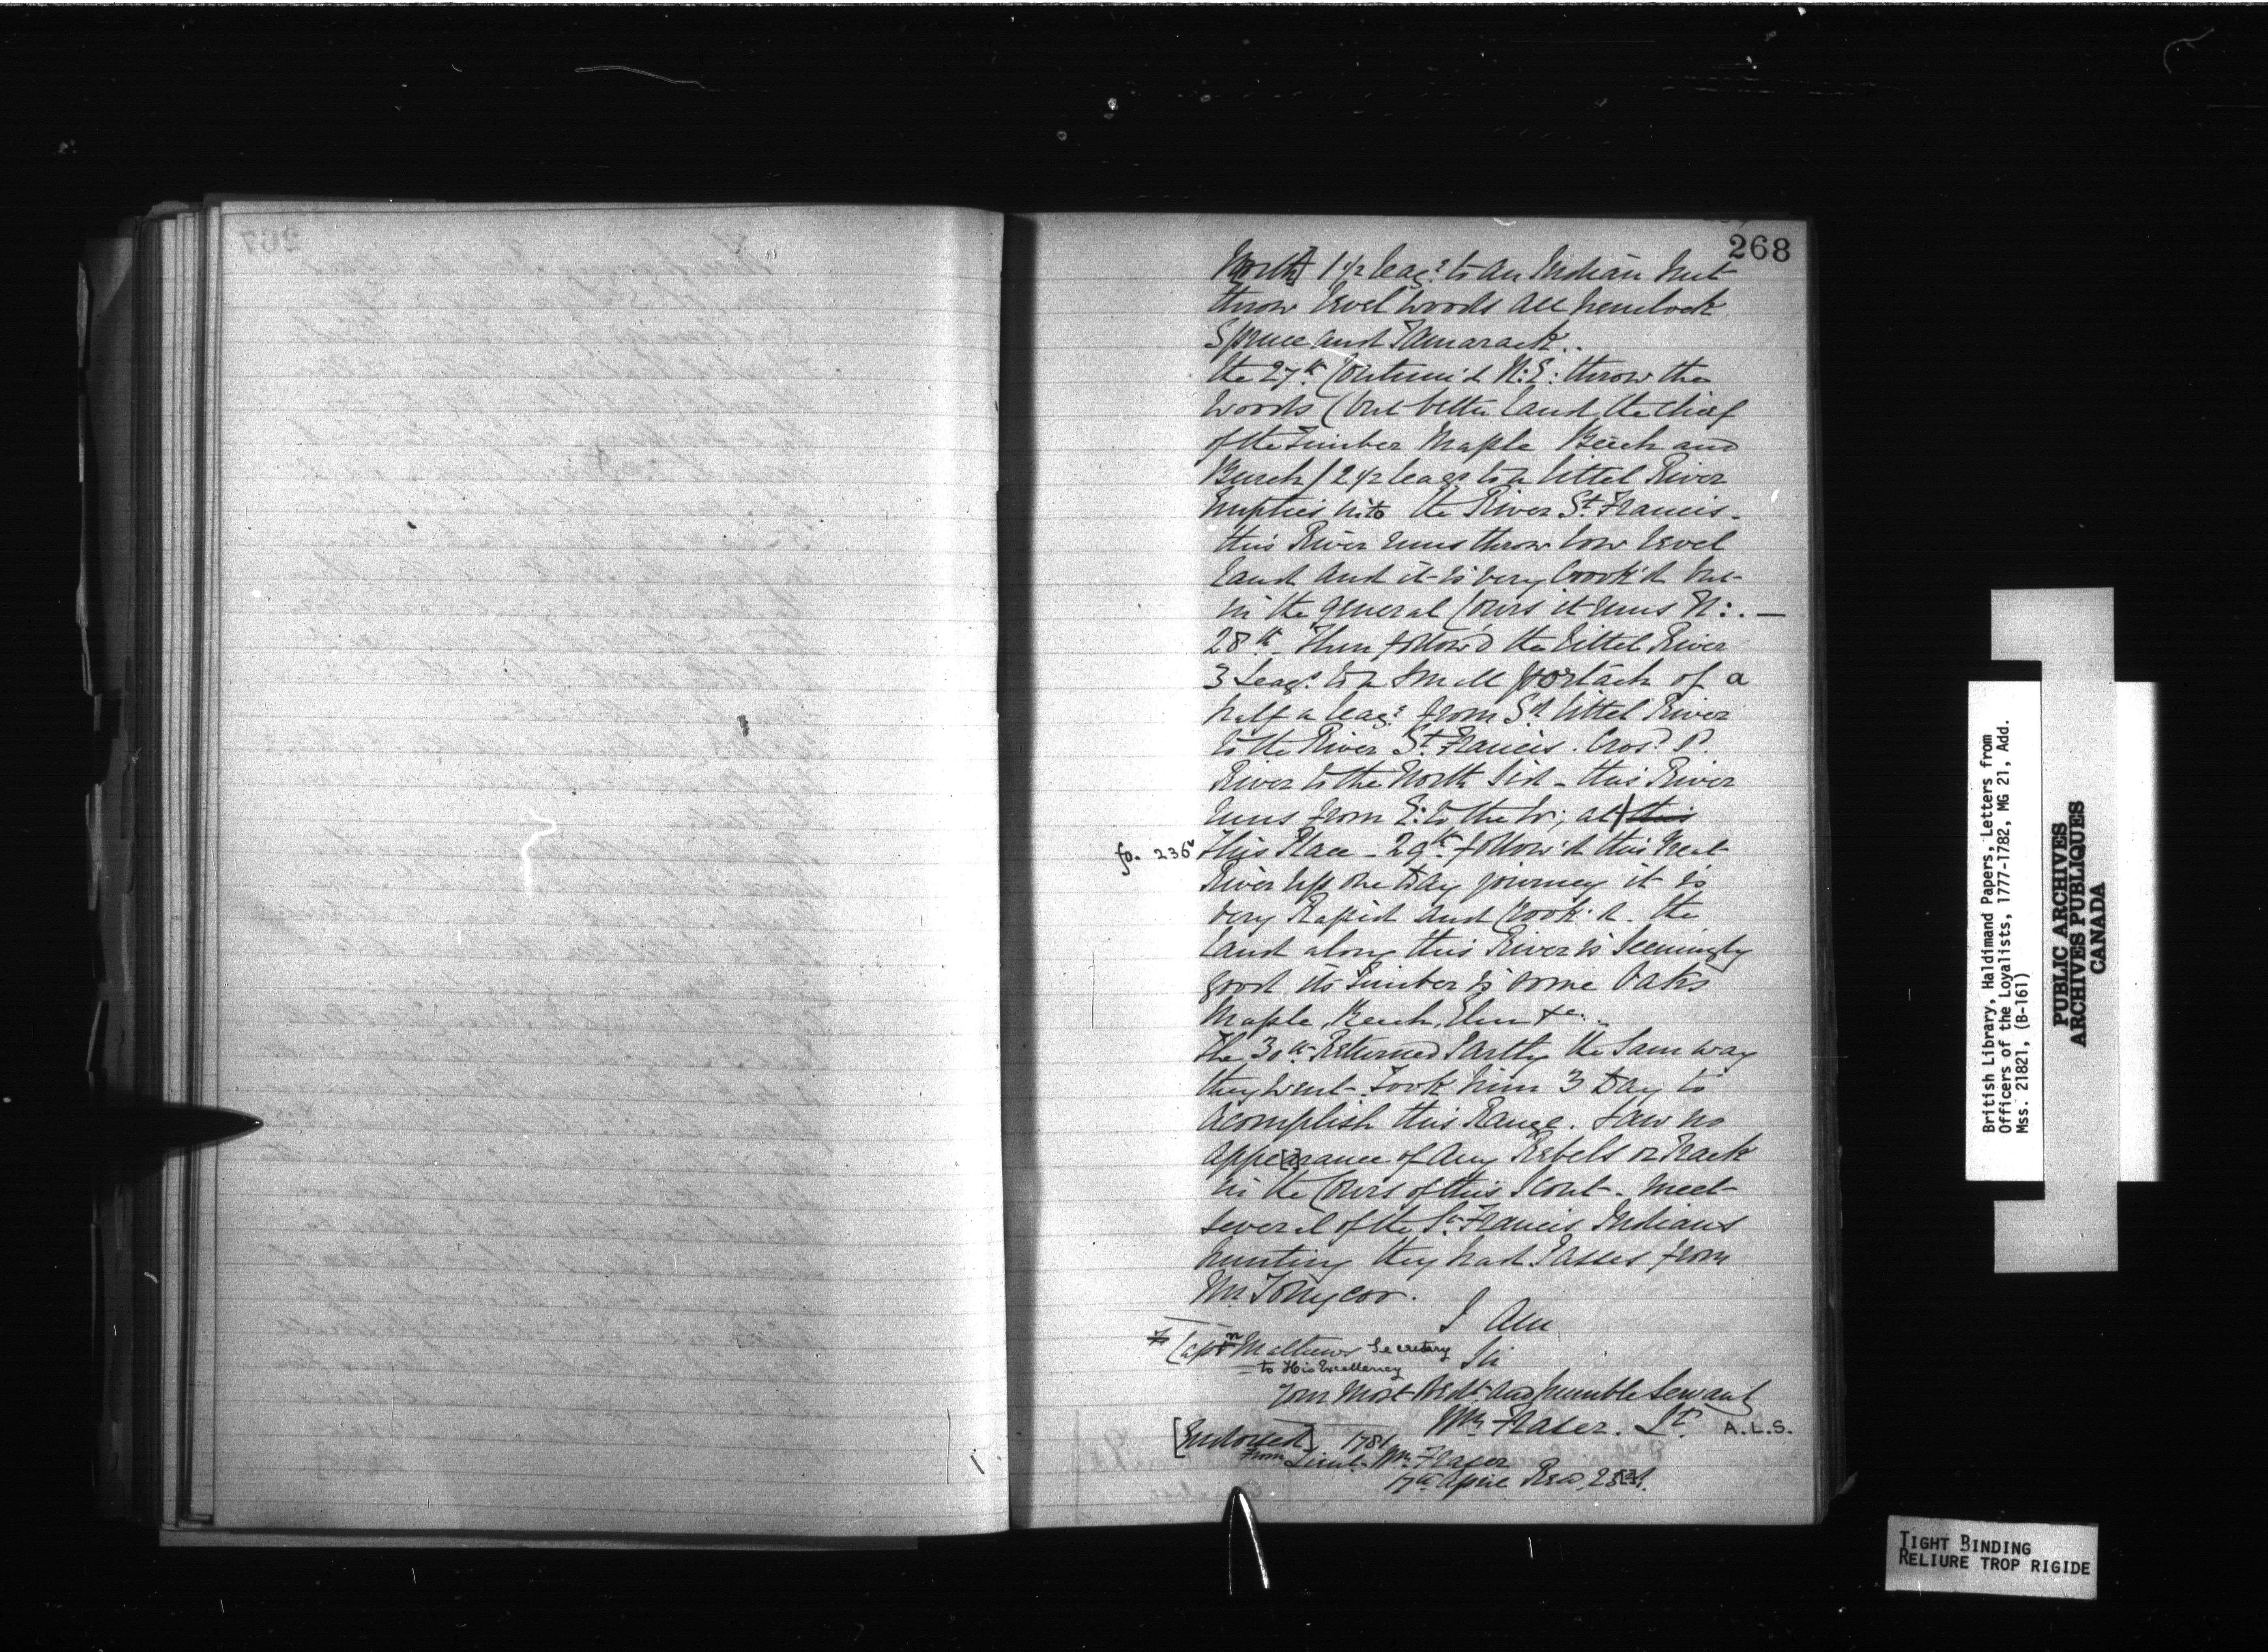 268
North] 1 1/2 leags to an Indian hut
throw level woods all hemlock
Spruce and Tamarack..
the 27th Continu'd N:E: throw the
woods (but better land the chief
of the Timber Maple Beech and
Burch) 2 1/2 leags to a littel River
Empties into the River St Francis -
this River runs throw low level
land and it is very Crook'd but
in the general Cours it runs N:. —
28th - Then follow'd the littel River
3 Leags to a small portach of a
half a leag: from Sd littel River
to the River St Francis. Cros'd Sd.
River to the North Sid - this River
runs from E: to the W; at this
fo. 236v this Place - 29th follow'd this
River up one day journey it is
very Rapid and Crook'd. the
land along this River is seemingly
good its Timber is some Oaks
Maple, Beech, Elm &c. ..
The 30th Returned Partly the Sam way
they went. Took him 3 Day to
acomplish this Range. Saw no
appe[a]rance of any Rebels or Track
in the Cours of this Scout - meet
several of the St Francis Indians
hunting they had Passes from
Mr
I Am
Captn Mathews Secretary
to His Excellency
Sir
Your Most Obedt and humble Servant
Wm Fraser. Lt. A.L.S.
[Endorsed] 1781
From Lieut. Wm Fraser
17th April Recd
267
British Library, Haldimand Papers, Letters from
Officers of the Loyalists, 1777-1782, MG 21, Add.
Mss. 21821, (B-161)
PUBLIC ARCHIVES
ARCHIVES PUBLIQUES
CANADA
TIGHT BINDING
RELIURE TROP RIGIDE